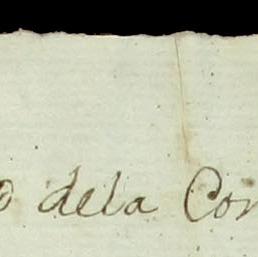 o dela Con